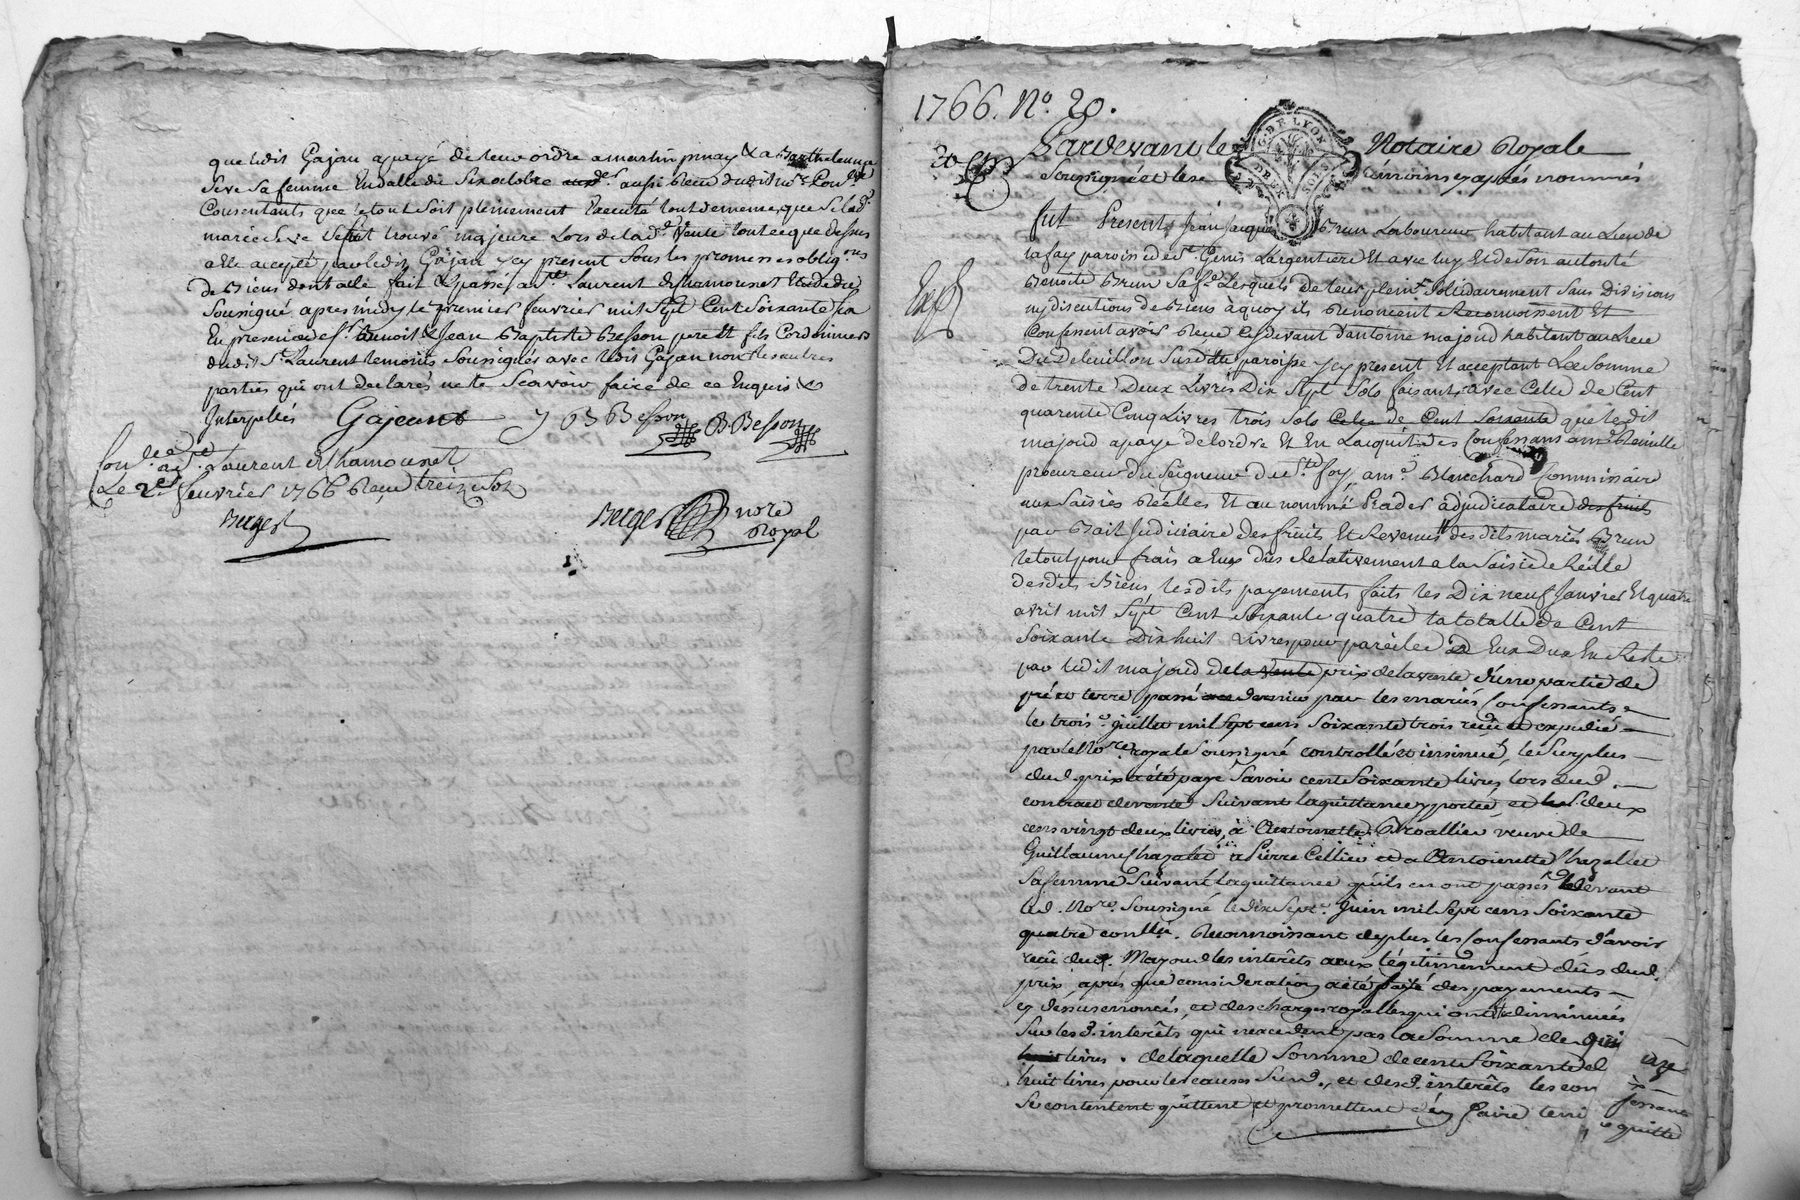 que ledit Gajan a payé de leur ordre a martin pinay & a Barthelemie
Seve sa femme En datte du Six octobre aussi Receu dudit no.re
Consentants que le tout Soit pleinement Executé tout de meme que Si lad.
mariée Seve Setoit trouvé majeure Lors de lad.e Vente tout ce que dessus
a Ete accepté par ledit Gajan icy present Sous les promesses obliga.ons
de Biens dont acte fait & passé a S.t Laurent de Chamousset Etude du
Soussigné apres midy le premier fevrier mil Sept Cent Soixante Six
En presence de S.rs Benoit & Jean Baptiste Besson pere Et fils Cordonniers
dudit S.t Laurent temoins Soussignés avec ledit Gajan non les autres
parties qui ont declarés ne le Scavoir faire de ce Enquis &
Interpellés Gajeant J B Besson B Besson
Con.llé a S.t Laurent de Chamousset
Le 2.e feuvrier 1766 Receu treize Sols
Berger
Berger no.re Royal
1766. N.o 20.
G. DE LYON
DEUX SOLS
Pardevant le Notaire Royale
Soussigné et les témoins cy après nommés
fut Present Jean Jacques Brun Laboureur habitant au Lieu de
la fay paroisse de S.t Genis Largentiere Et avec luy Et de Son autorité
Benoite Brun Sa fe. Lesquels de leur plein Solidairement Sans Divisions
ny discutions de Biens à quoy ils Renoncent Reconnoissent Et
Confessent avoir Receu Cy devant d'antoine majoud habitant au Lieu
Du Deluillon Susditte paroisse icy present Et acceptant La Somme
de trente Deux Livres Dix Sept Sols faisant avec Celle de Cent
quarente Cinq Livres trois Sols Celle de Cent Soixante que ledit
majoud a payé de lordre Et En Lacquit des Confessans a m.e Reinille
procureur du Seigneur de S.te foy, a m.e Blanchard Commissaire
aux Saisies Réelles Et au nommé Prades adjudicataire des fruits
par Bail Judiciaire des fruits Et Revenus desdits mariés Brun
le tout pour frais a Eux Dus Relativement a la Saisie Réelle
desdits Biens, lesdits payements faits les Dix neuf Janvier Et quatre
avril mil Sept Cent Soixante quatre la totalle de Cent
Soixante Dix huit Livres pour pareille a Eux Due En Reste
par ledit majoud de la Vente prix de la vente d'une partie de
pré et terre passé par les mariés Confessants
le trois.e juillet mil Sept cens Soixante trois reçu et expedié
par le No.re royale Soussigné controllé et insinué, le Surplus
dud. prix a été payé Savoir cent Soixante livres lors dud.
contract de vente Suivant la quittance y portée, et les deux
cens vingt deux livres, à Antoinette Broallier veuve de
Guillaume Chazalet a Pierre Cellier et a Antoinette Chazallet
Sa femme Suivant la quittance qu'ils en ont passés devant
led. No.re Soussigné le dix Sept.e Juin mil Sept cens Soixante
quatre con.llée. Reconnoissant de plus les Confessants d'avoir
reçu dud. Mayoud les interêts a eux légitimement dûs dud.
prix, après que consideration a été faite des payements
cy dessus enoncés, et des charges royalles qui ont diminués
Sur les d. interêts, qui n'excedent pas la Somme de quinze
livres. de laquelle Somme de cent Soixante dix
huit livres pour les causes Susd., et desd. interêts les confessants
Se contentent quittent et promettent d'en faire tenir quitte